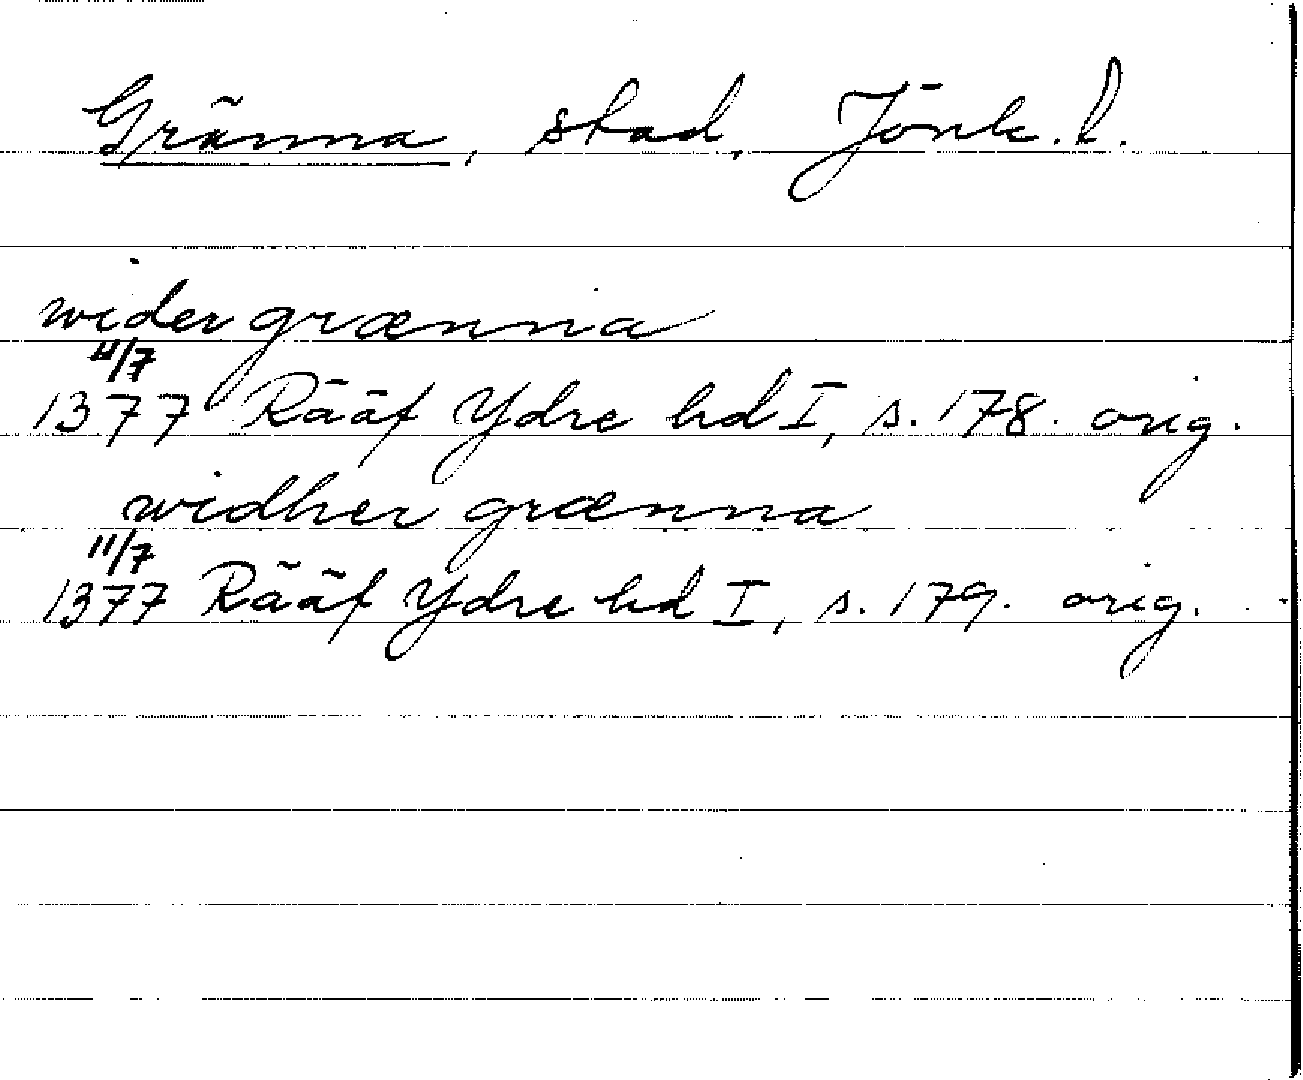 Gränna, stad, Jönk. l.
wider grænna
11/7
1377 Rääf Ydre hd I, s. 178. orig.
widher grænna
11/7
1377 Rääf Ydre hd I, s. 179. orig.